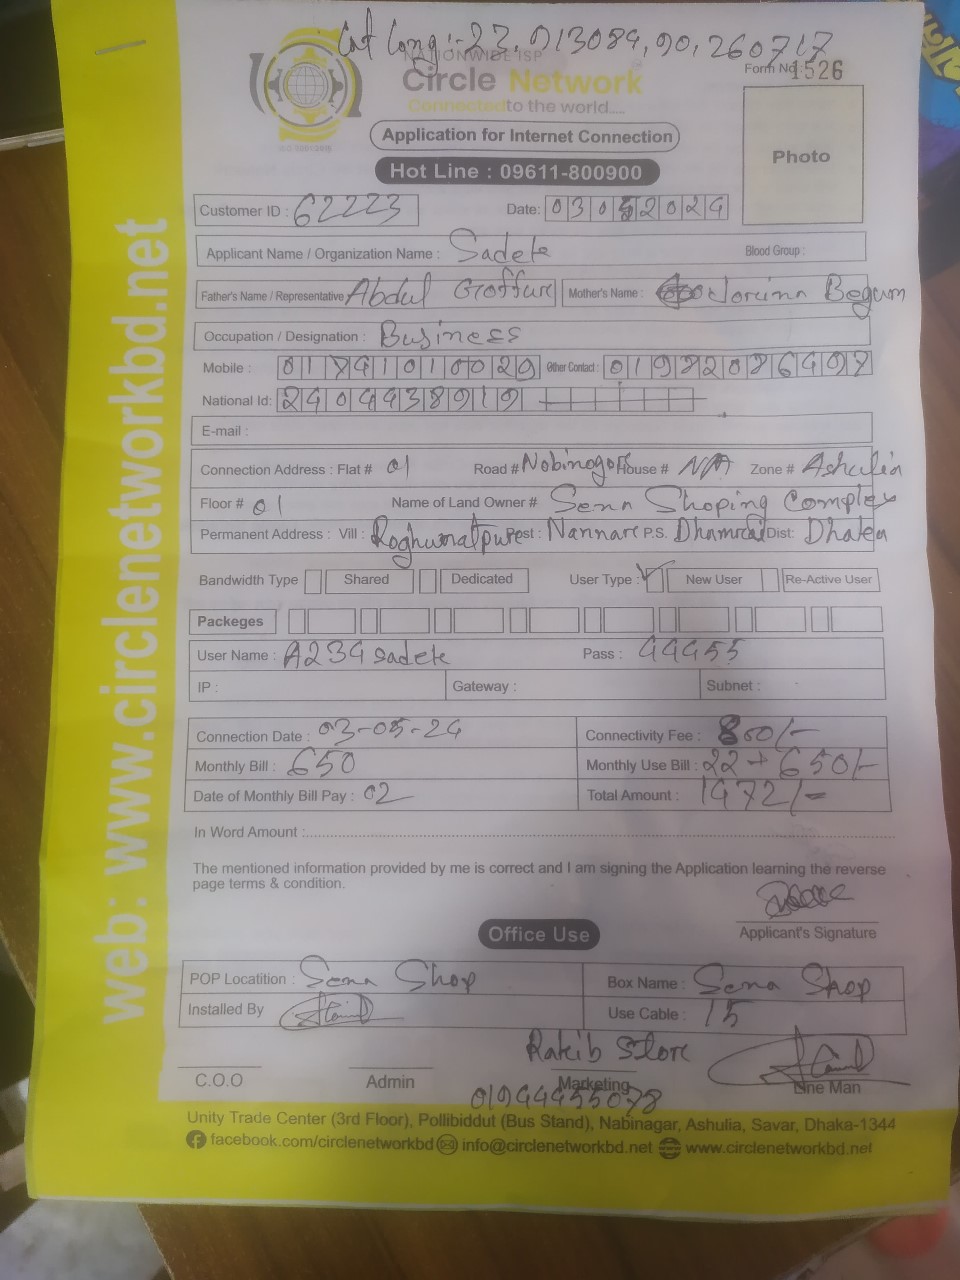 Lat Long :- 23.913084, 90.260717
NATIONWIDE ISP
Circle Network
Connected to the world.....
Form No: 1526
Application for Internet Connection
Hot Line : 09611-800900
Photo
ISO 9001:2015
Customer ID : 62223 Date: 03052024
Applicant Name / Organization Name : Sadek Blood Group :
Father's Name / Representative Abdul Goffur Mother's Name : Begum
Occupation / Designation : Business
Mobile : Other Contact :
National Id: 2404438919
E-mail :
Connection Address : Flat # 01 Road # Nobinogor House # N/A Zone # Ashulia
Floor # 01 Name of Land Owner # Sena Shoping Complex
Permanent Address : Vill : Roghunatpur Post : Nannar P.S. Dhamrai Dist: Dhaka
Bandwidth Type Shared Dedicated User Type : ✓ New User Re-Active User
Packeges
User Name : A234 sadek Pass : 44455
IP : Gateway : Subnet :
Connection Date : 03-05-24 Connectivity Fee : 800/-
Monthly Bill : 650 Monthly Use Bill : 22 + 650/-
Date of Monthly Bill Pay : 02 Total Amount : 1472/-
In Word Amount :
The mentioned information provided by me is correct and I am signing the Application learning the reverse
page terms & condition.
Applicant's Signature
Office Use
POP Locatition : Sena Shop Box Name : Sena Shop
Installed By Use Cable : 15
Rakib Store
C.O.O Admin Marketing Line Man
01944455078
Unity Trade Center (3rd Floor), Pollibiddut (Bus Stand), Nabinagar, Ashulia, Savar, Dhaka-1344
facebook.com/circlenetworkbd info@circlenetworkbd.net www.circlenetworkbd.net
web: www.circlenetworkbd.net